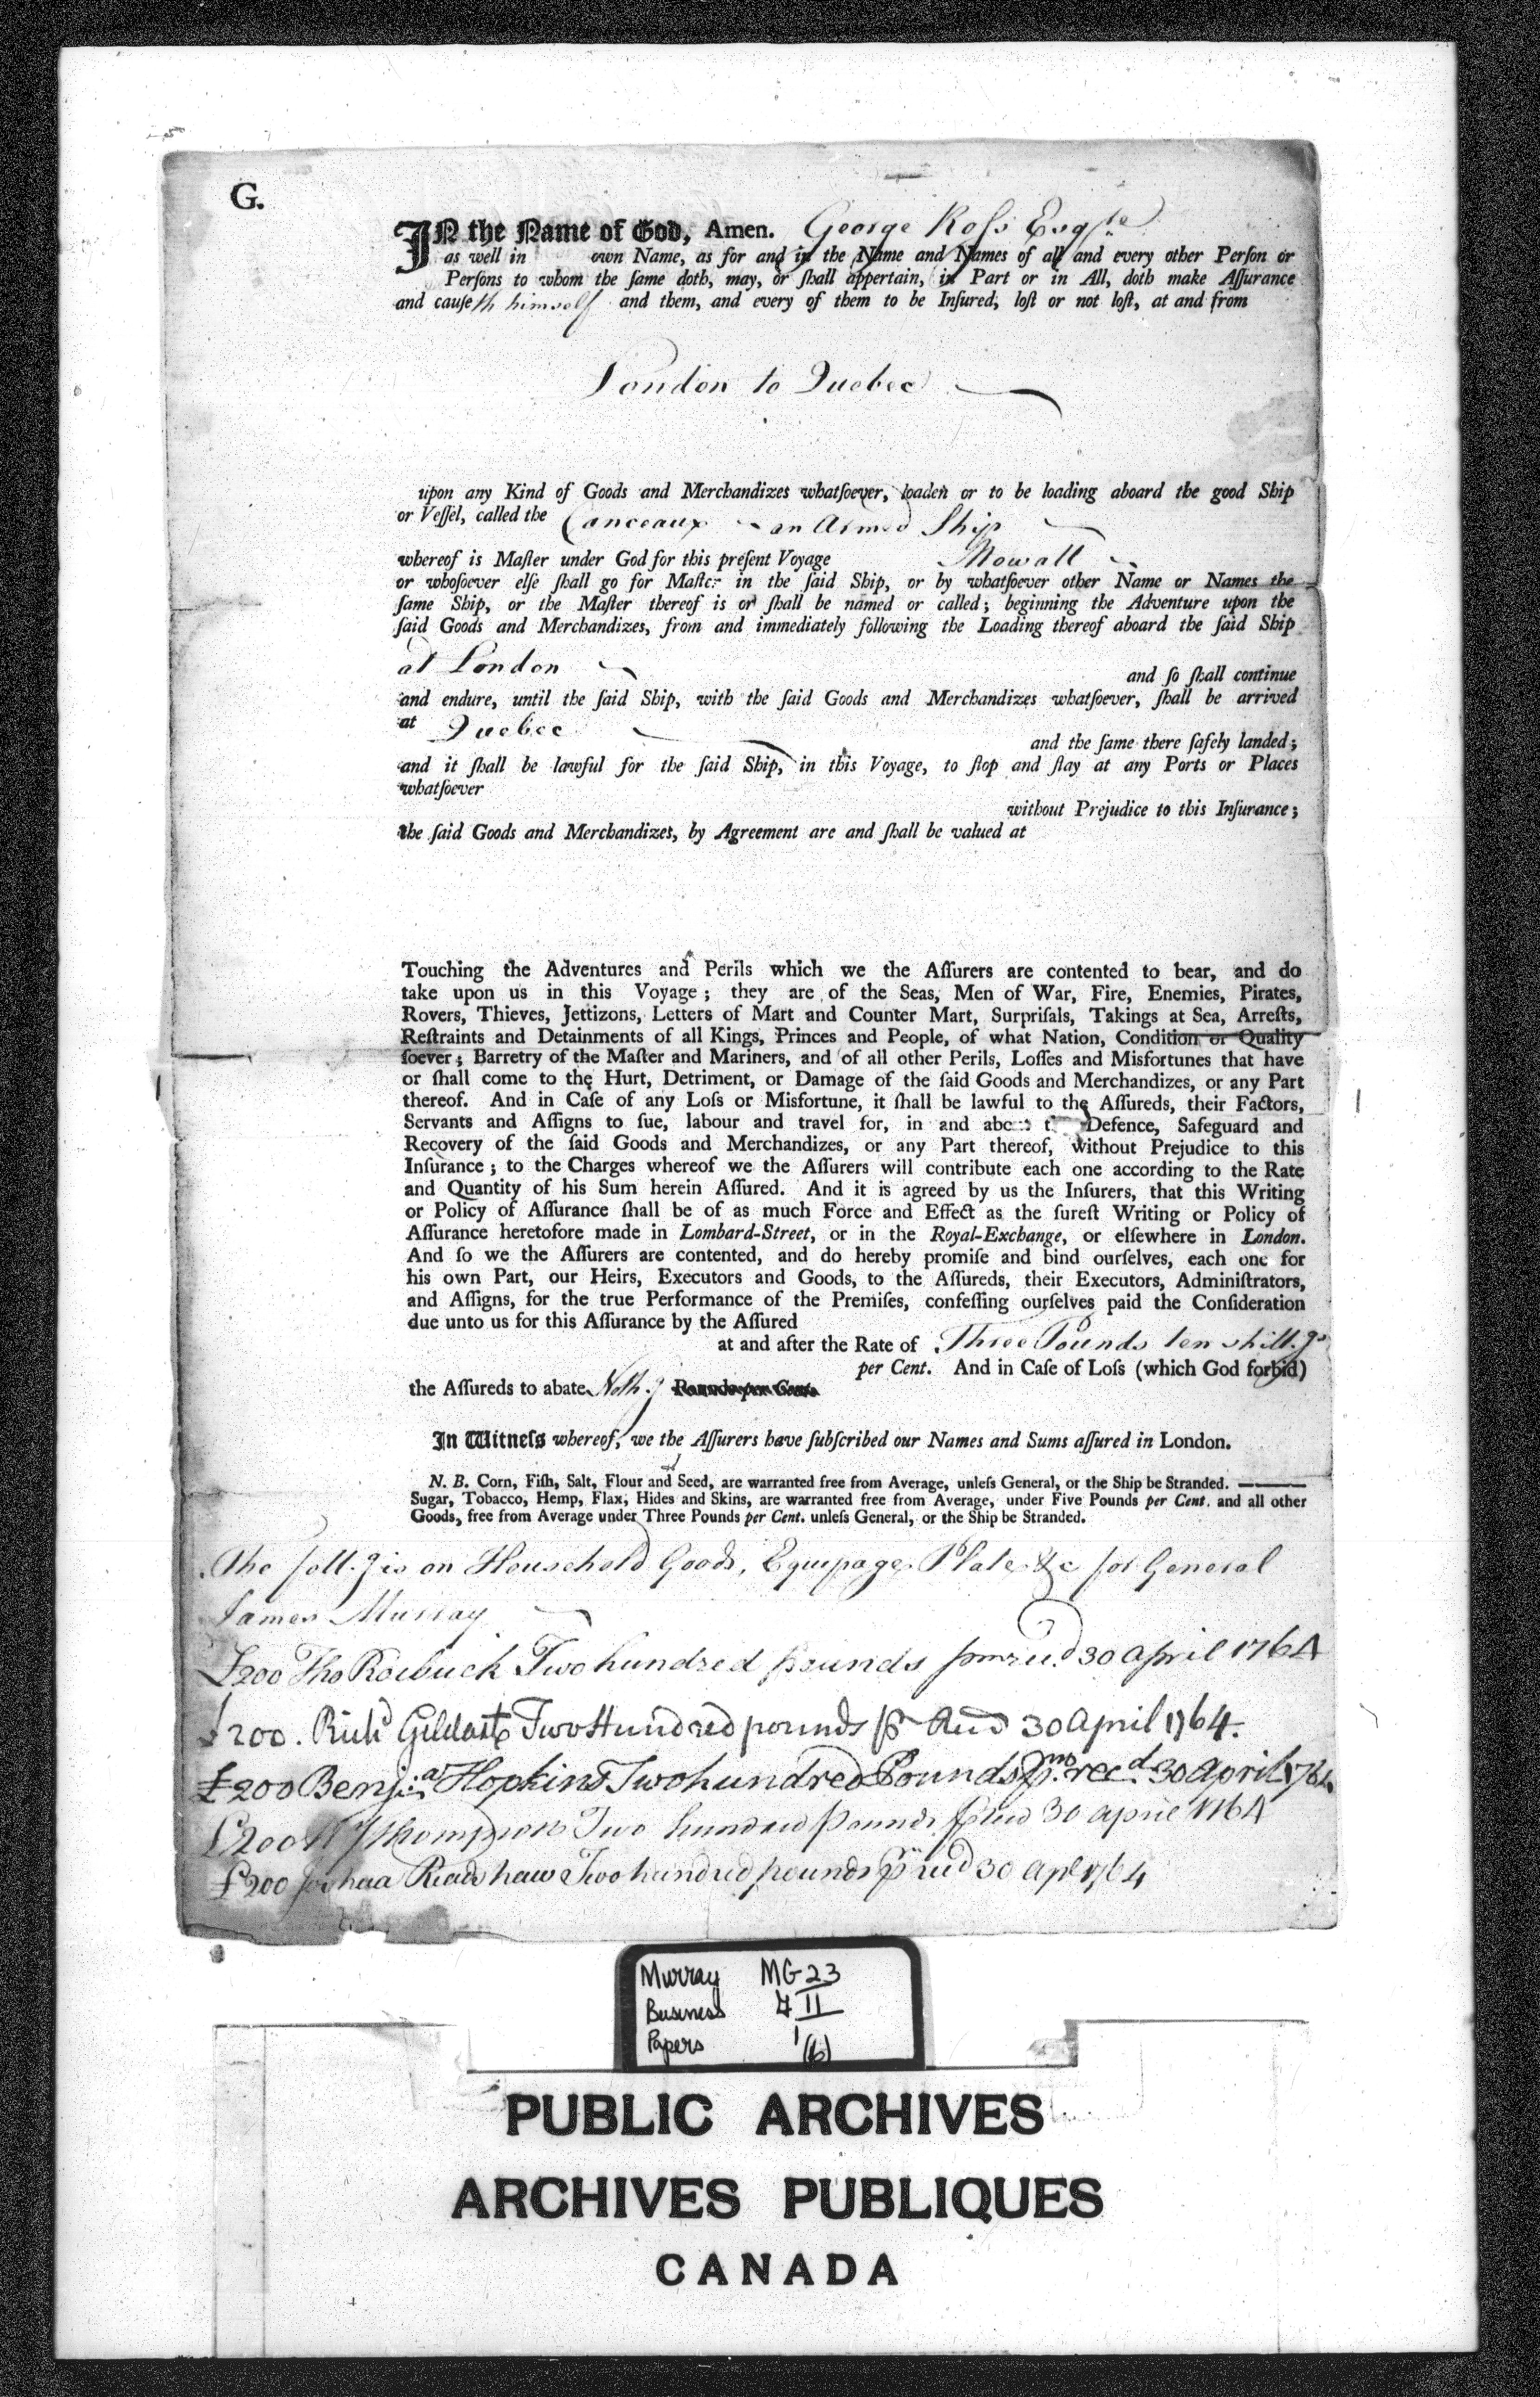 G.
IN the Name of God, Amen. George Ross Esqre
as well in own Name, as for and in the Name and Names of all and every other Perſon or
Perſons to whom the ſame doth, may, or ſhall appertain, in Part or in All, doth make Aſſurance
and cauſeth himself and them, and every of them to be Inſured, loſt or not loſt, at and from
London to Quebec
upon any Kind of Goods and Merchandizes whatſoever, loaden or to be loading aboard the good Ship
or Veſſel, called the Canceaux an Armed Ship
whereof is Maſter under God for this preſent Voyage Mowatt
or whoſoever elſe ſhall go for Maſter in the ſaid Ship, or by whatſoever other Name or Names the
ſame Ship, or the Maſter thereof is or ſhall be named or called; beginning the Adventure upon the
ſaid Goods and Merchandizes, from and immediately following the Loading thereof aboard the ſaid Ship
at London
and ſo ſhall continue
and endure, until the ſaid Ship, with the ſaid Goods and Merchandizes whatſoever, ſhall be arrived
at Quebec
and the ſame there ſafely landed;
and it ſhall be lawful for the ſaid Ship, in this Voyage, to ſtop and ſtay at any Ports or Places
whatſoever
without Prejudice to this Inſurance;
the ſaid Goods and Merchandizes, by Agreement are and ſhall be valued at
Touching the Adventures and Perils which we the Aſſurers are contented to bear, and do
take upon us in this Voyage; they are of the Seas, Men of War, Fire, Enemies, Pirates,
Rovers, Thieves, Jettizons, Letters of Mart and Counter Mart, Surpriſals, Takings at Sea, Arreſts,
Reſtraints and Detainments of all Kings, Princes and People, of what Nation, Condition or Quality
ſoever; Barretry of the Maſter and Mariners, and of all other Perils, Loſſes and Misfortunes that have
or ſhall come to the Hurt, Detriment, or Damage of the ſaid Goods and Merchandizes, or any Part
thereof. And in Caſe of any Loſs or Misfortune, it ſhall be lawful to the Aſſureds, their Factors,
Servants and Aſſigns to ſue, labour and travel for, in and about the Defence, Safeguard and
Recovery of the ſaid Goods and Merchandizes, or any Part thereof, without Prejudice to this
Inſurance; to the Charges whereof we the Aſſurers will contribute each one according to the Rate
and Quantity of his Sum herein Aſſured. And it is agreed by us the Inſurers, that this Writing
or Policy of Aſſurance ſhall be of as much Force and Effect as the ſureſt Writing or Policy of
Aſſurance heretofore made in Lombard-Street, or in the Royal-Exchange, or elſewhere in London.
And ſo we the Aſſurers are contented, and do hereby promiſe and bind ourſelves, each one for
his own Part, our Heirs, Executors and Goods, to the Aſſureds, their Executors, Adminiſtrators,
and Aſſigns, for the true Performance of the Premiſes, confeſſing ourſelves paid the Conſideration
due unto us for this Aſſurance by the Aſſured
at and after the Rate of Three Pounds ten shill.gs
per Cent. And in Caſe of Loſs (which God forbid)
the Aſſureds to abate Noth.g Pounds per Cent.
In Witneſs whereof, we the Aſſurers have ſubſcribed our Names and Sums aſſured in London.
N. B. Corn, Fiſh, Salt, Flour and Seed, are warranted free from Average, unleſs General, or the Ship be Stranded. ———
Sugar, Tobacco, Hemp, Flax, Hides and Skins, are warranted free from Average, under Five Pounds per Cent. and all other
Goods, free from Average under Three Pounds per Cent. unleſs General, or the Ship be Stranded.
The foll.g is on Household Goods, Equipage Plate &c for General
James Murray
£200 Tho Roebuck Two hundred pounds 30 April 1764
£200. Richd Gildart Two Hundred pounds 30 April 1764.
£200 Benj:a Hopkins Two hundred Pounds Pmo recd 30 April 1764
£200 Thompson Two hundred pounds 30 april 1764
£200 Joshua Readshaw Two hundred pounds 30 Apl 1764
Murray MG 23
Business II
Papers 1(6)
PUBLIC ARCHIVES
ARCHIVES PUBLIQUES
CANADA